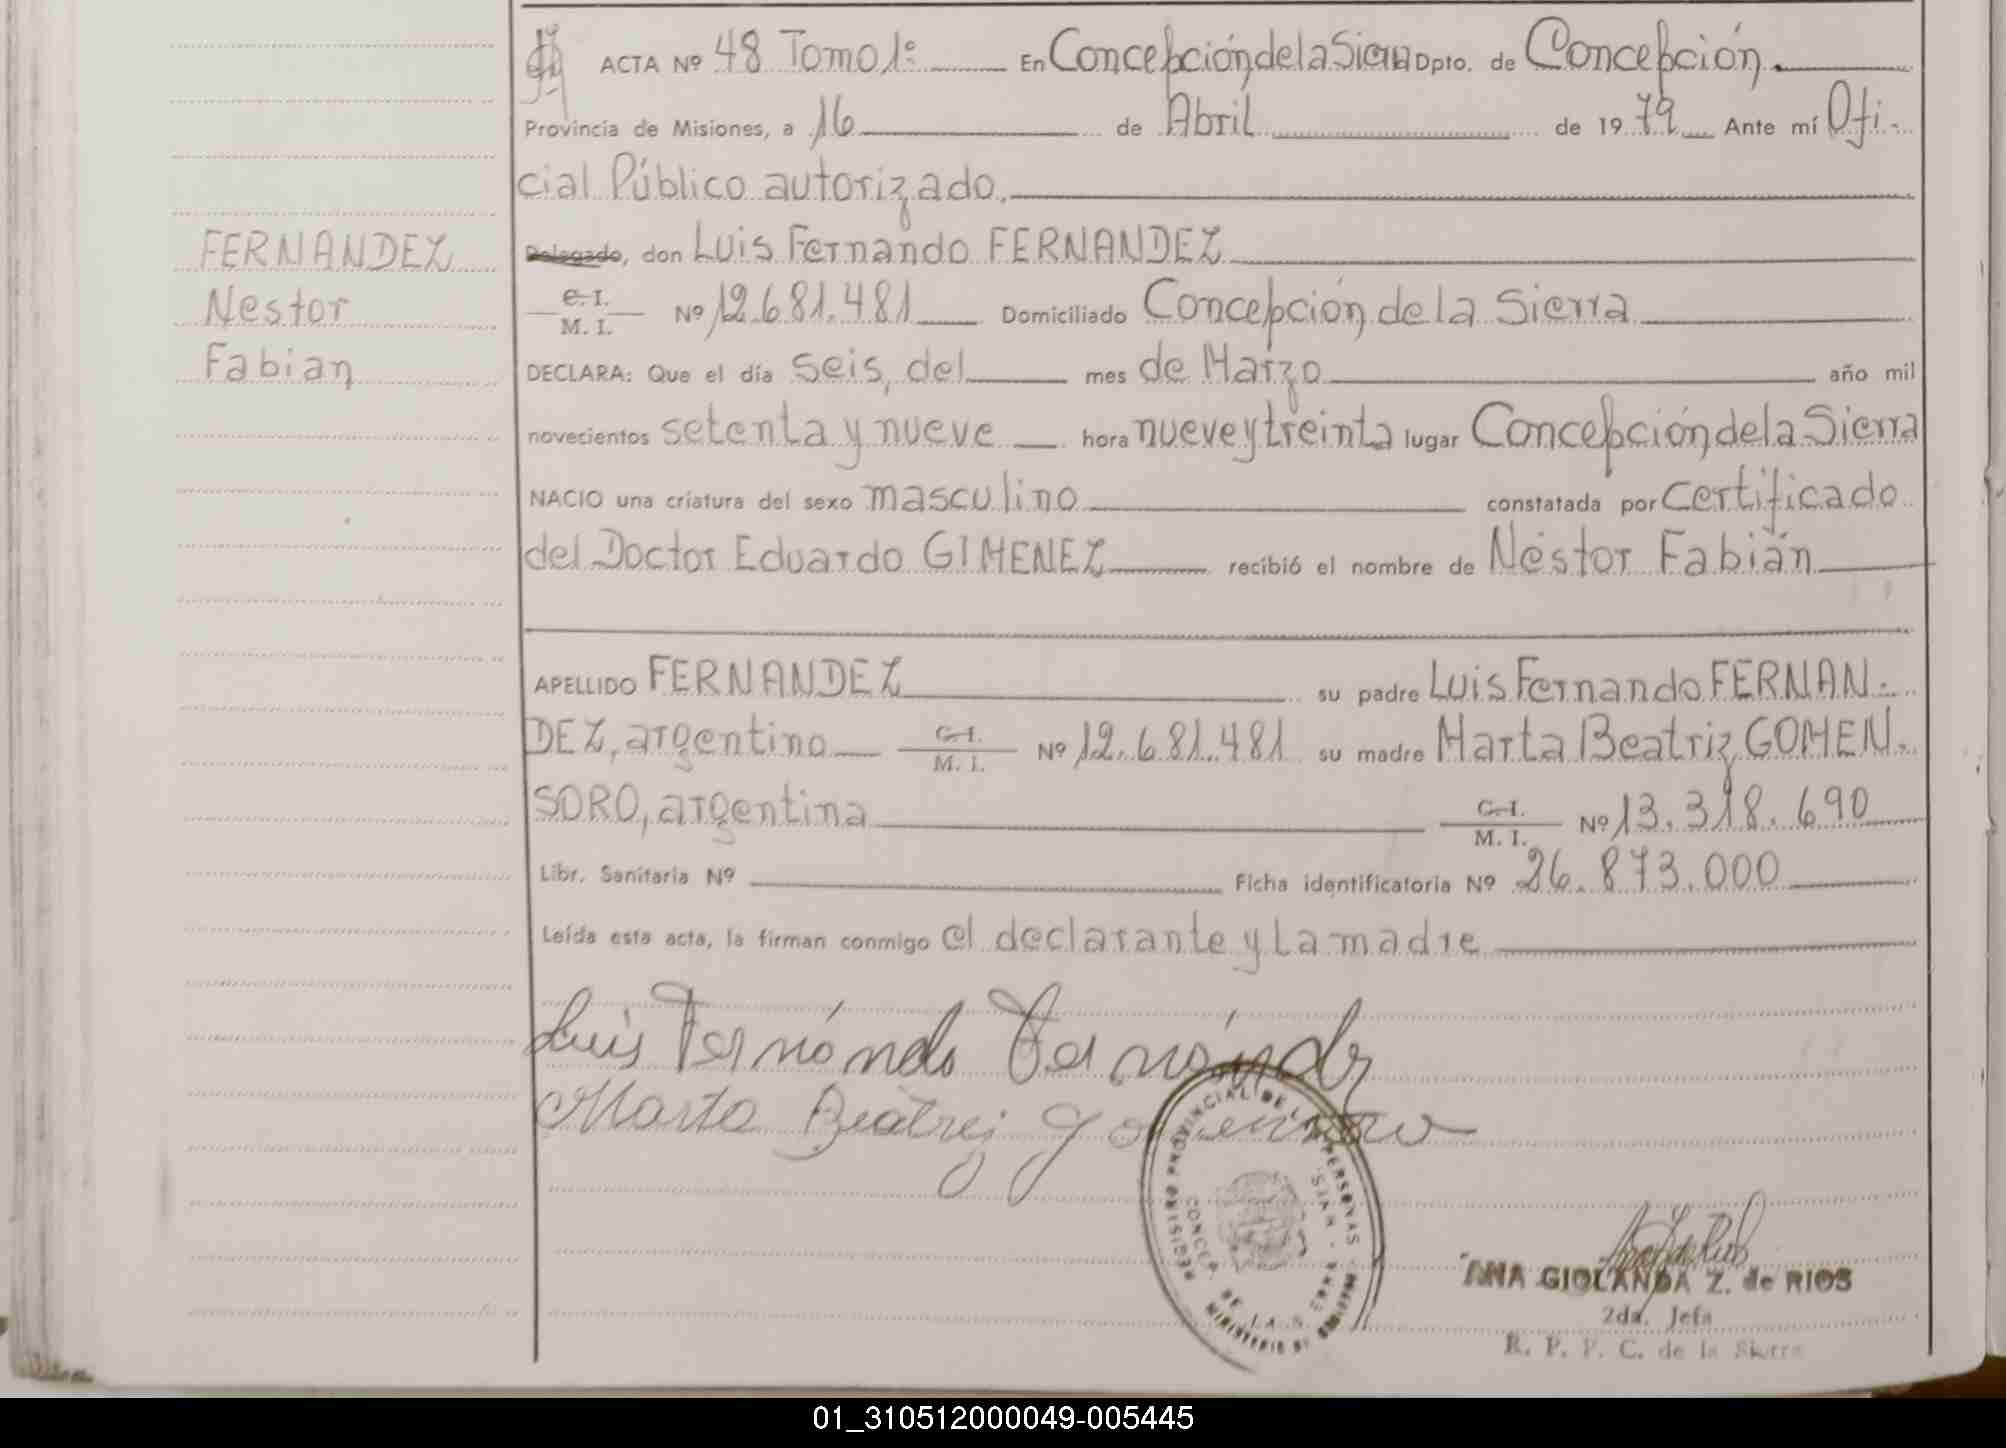 ACTA Nº 48 Tomo 1º En Concepción de la Sierra Dpto. de Concepción.
Provincia de Misiones, a 16 de Abril de 1979 Ante mí Ofi-
cial Público autorizado.
FERNANDEZ
Nestor
Fabian
Delegado, don Luis Fernando FERNANDEZ
C. I.
M. I. Nº 12.681.481 Domiciliado Concepción de la Sierra
DECLARA: Que el día seis, del mes de Marzo año mil
novecientos setenta y nueve hora nueve y treinta lugar Concepción de la Sierra
NACIO una criatura del sexo masculino constatada por Certificado
del Doctor Eduardo GIMENEZ recibió el nombre de Néstor Fabián
APELLIDO FERNANDEZ su padre Luis Fernando FERNAN-
DEZ, argentino C. I. M. I. Nº 12.681.481 su madre Marta Beatriz GOMEN-
SORO, argentina C. I. M. I. Nº 13.318.690
Libr. Sanitaria Nº Ficha identificatoria Nº 26.873.000
Leída esta acta, la firman conmigo el declarante y La madre
Luis Fernando Fernández
Marta Beatriz Gomensoro
REGISTRO PROVINCIAL DE LAS PERSONAS
CONCEP. DE LA SIERRA
MINISTERIO DE GOBIERNO
ANA GIOLANDA Z. de RIOS
2da. Jefa
R. P. P. C. de la Sierra
01_310512000049-005445